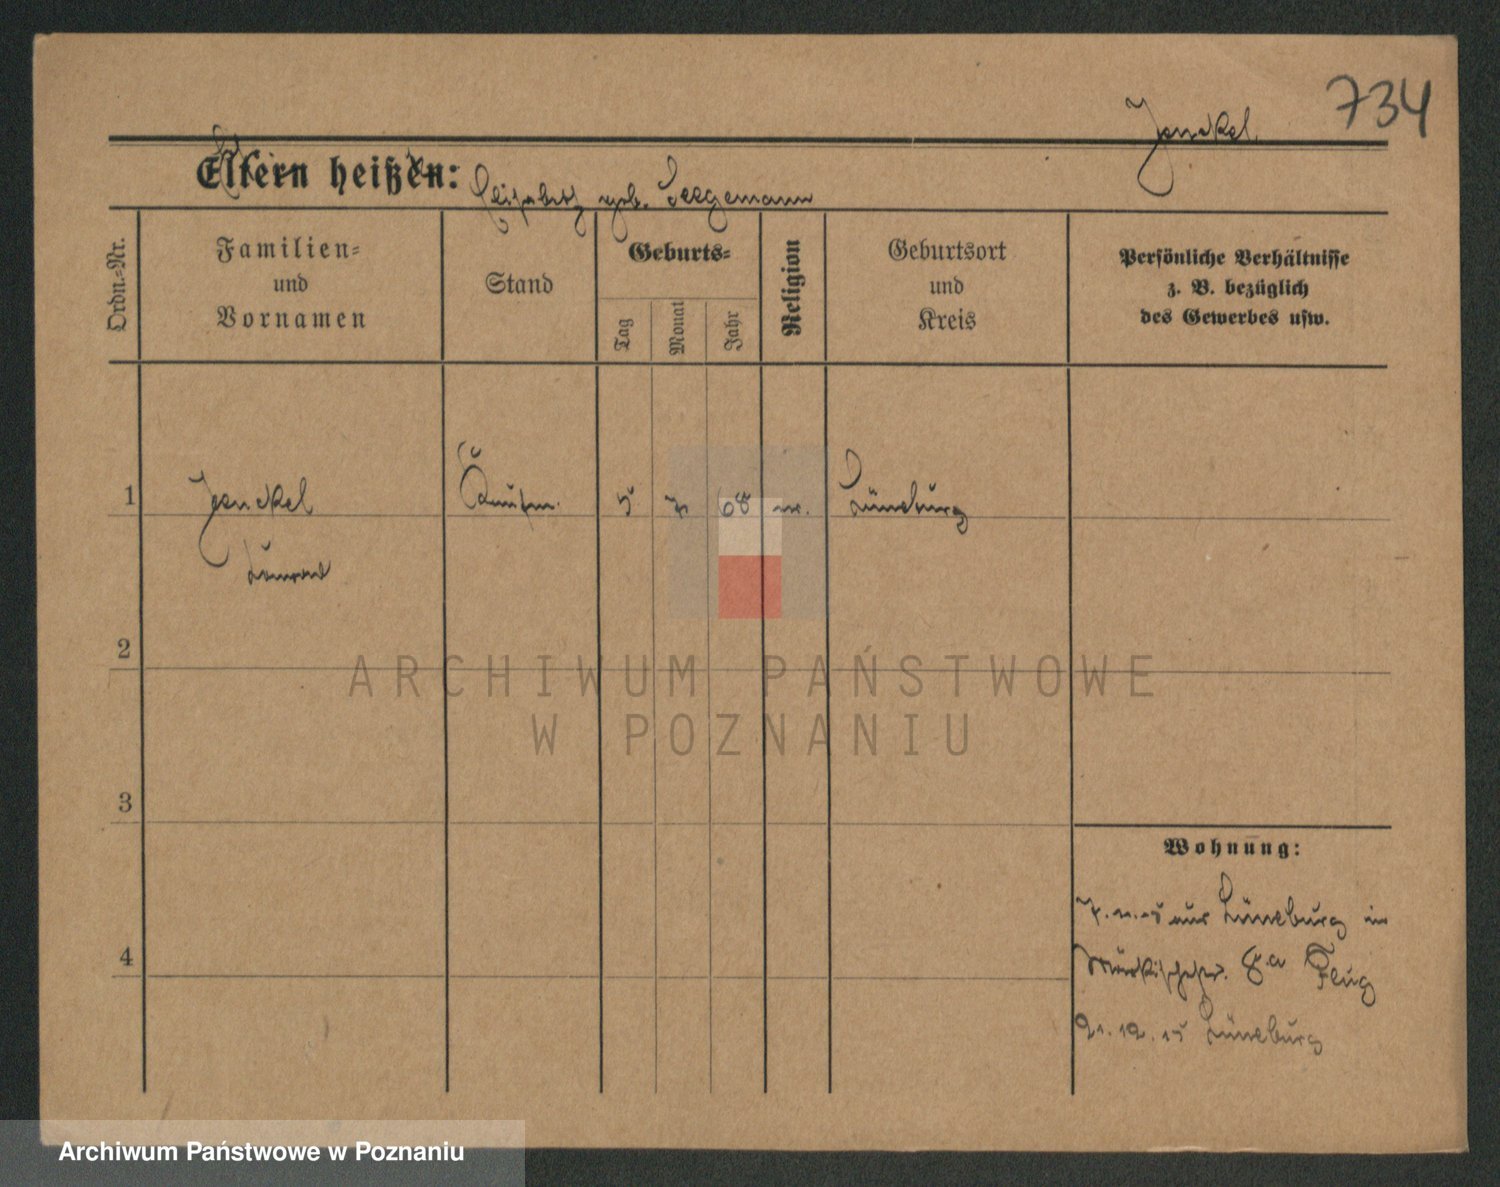 734
Jenckel.
Eltern heißen:
Elisabeth geb. Seegemann
Ordn.=Nr.
Familien=
und
Vornamen
Stand
Geburts=
Tag
Monat
Jahr
Religion
Geburtsort
und
Kreis
Persönliche Verhältnisse
z. B. bezüglich
des Gewerbes usw.
1
Jenckel
Kaufm.
5
7
68
ev.
Lüneburg
2
ARCHIWUM PAŃSTWOWE
W POZNANIU
3
Wohnung:
7.11.15 aus Lüneburg in
Märkischestr. 8a
4
21.12.15 Lüneburg
Archiwum Państwowe w Poznaniu